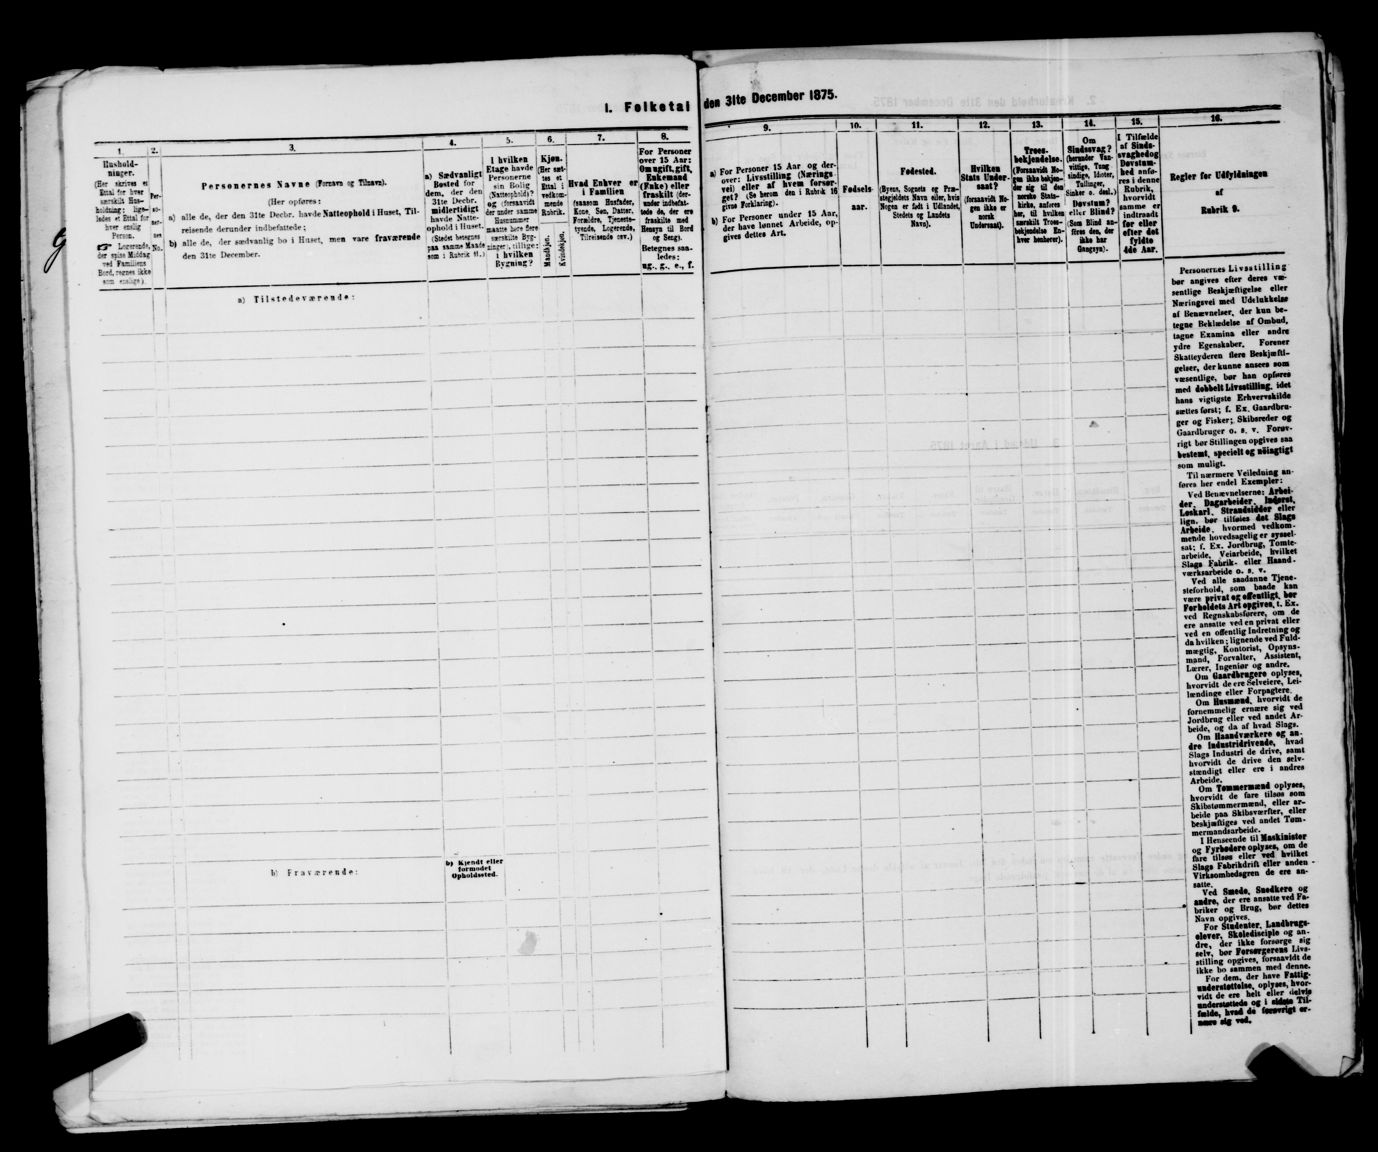 1. Folketal den 31te December 1875.
1.
Hushold-
ninger.
(Her skrives et
Ettal for hver
særskilt Hus-
holdning; lige-
ledes et Ettal for
hver enslig
Person.
☞ Logerende,
der spise Middag
ved Familiens
Bord, regnes ikke
som enslige).
2.
Per-
so-
ner-
nes
No.
3.
Personernes Navne (Fornavn og Tilnavn).
(Her opføres:
a) alle de, der den 31te Decbr. havde Natteophold i Huset, Til-
reisende derunder indbefattede;
b) alle de, der sædvanlig bo i Huset, men vare fraværende
den 31te December.
4.
a) Sædvanligt
Bosted for
dem, der den
31te Decbr.
midlertidigt
havde Natte-
ophold i Huset.
(Stedet betegnes
paa samme Maade
som i Rubrik 11.)
5.
I hvilken
Etage havde
Personerne
sin Bolig
(Natteophold)?
og (forsaavidt
der under samme
Husnummer
maatte høre flere
særskilte Byg-
ninger), tillige:
i hvilken
Bygning?
6.
Kjøn.
(Her sæt-
tes et
Ettal i
vedkom-
mende
Rubrik.
Mandkjøn.
Kvindekjøn.
7.
Hvad Enhver er
i Familien
(saasom Husfader,
Kone, Søn, Datter,
Forældre, Tjeneste-
tyende, Logerende,
Tilreisende osv.)
8.
For Personer
over 15 Aar:
Om ugift, gift,
Enkemand
(Enke) eller
fraskilt (der-
under indbefat-
tede de, der ere
fraskilte med
Hensyn til Bord
og Seng).
Betegnes saa-
ledes:
ug., g., e., f.
9.
a) For Personer 15 Aar og der-
over: Livsstilling (Nærings-
vei) eller af hvem forsør-
get? (Se herom den i Rubrik 16
givne Forklaring).
b) For Personer under 15 Aar,
der have lønnet Arbeide, op-
gives dettes Art.
10.
Fødsels-
aar.
11.
Fødested.
(Byens, Sognets og Præ-
stegjeldets Navn eller, hvis
Nogen er født i Udlandet,
Stedets og Landets
Navn).
12.
Hvilken
Stats Under-
saat?
(forsaavidt No-
gen ikke er
norsk
Undersaat).
13.
Troes-
bekjendelse.
(Forsaavidt No-
gen ikke bekjen-
der sig til den
norske Stats-
kirke, anføres
her, til hvilken
særskilt Troes-
bekjendelse En-
hver henhører).
14.
Om
Sindssvag?
(herunder Van-
vittige, Tung-
sindige, Idioter,
Tullinger,
Sinker o. desl.)
Døvstum?
eller Blind?
(Som Blind an-
føres den, der
ikke har
Gangsyn).
15.
I Tilfælde
af Sinds-
svaghed og
Døvstum-
hed anfø-
res i denne
Rubrik,
hvorvidt
samme er
indtraadt
før eller
efter det
fyldte
4de Aar.
16.
Regler for Udfyldningen
af
Rubrik 9.
a) Tilstedeværende:
b) Fraværende:
b) Kjendt eller
formodet
Opholdssted.
Personernes Livsstilling
bør angives efter deres væ-
sentlige Beskjæftigelse eller
Næringsvei med Udelukkelse
af Benævnelser, der kun be-
tegne Beklædelse af Ombud,
tagne Examina eller andre
ydre Egenskaber. Forener
Skatteyderen flere Beskjæfti-
gelser, der kunne ansees som
væsentlige, bør han opføres
med dobbelt Livsstilling, idet
hans vigtigste Erhvervskilde
sættes først; f. Ex. Gaardbru-
ger og Fisker; Skibsreder og
Gaardbruger o. s. v. Forøv-
rigt bør Stillingen opgives saa
bestemt, specielt og nöiagtigt
som muligt.
Til nærmere Veiledning an-
føres her endel Exempler:
Ved Benævnelserne: Arbei-
der, Dagarbeider, Inderst,
Løskarl, Strandsidder eller
lign. bør tilføies det Slags
Arbeide, hvormed vedkom-
mende hovedsagelig er syssel-
sat; f. Ex. Jordbrug, Tomte-
arbeide, Veiarbeide, hvilket
Slags Fabrik- eller Haand-
værksarbeide o. s. v.
Ved alle saadanne Tjene-
steforhold, som baade kan
være privat og offentligt, bør
Forholdets Art opgives, t. Ex.
ved Regnskabsførere, om de
ere ansatte ved en privat eller
ved en offentlig Indretning og
da hvilken; lignende ved Fuld-
mægtig, Kontorist, Opsyns-
mand, Forvalter, Assistent,
Lærer, Ingeniør og andre.
Om Gaardbrugere oplyses,
hvorvidt de ere Selveiere, Lei-
lændinge eller Forpagtere.
Om Husmænd, hvorvidt de
fornemmelig ernære sig ved
Jordbrug eller ved andet Ar-
beide, og da af hvad Slags.
Om Haandværkere og an-
dre Industridrivende, hvad
Slags Industri de drive, samt
hvorvidt de drive den selv-
stændigt eller ere i andres
Arbeide.
Om Tømmermænd oplyses,
hvorvidt de fare tilsøs som
Skibstømmermænd, eller ar-
beide paa Skibsværfter, eller
beskjæftiges ved andet Tøm-
mermandsarbeide.
I Henseende til Maskinister
og Fyrbødere oplyses, om de
fare tilsøs eller ved hvilket
Slags Fabrikdrift eller anden
Virksomhedsgren de ere an-
satte.
Ved Smede, Snedkere og
andre, der ere ansatte ved Fa-
briker og Brug, bør dettes
Navn opgives.
For Studenter, Landbrugs-
elever, Skoledisciple og an-
dre, der ikke forsørge sig
selv, bør Forsørgerens Livs-
stilling opgives, forsaavidt de
ikke bo sammen med denne.
For dem, der have Fattig-
understøttelse, oplyses, hvor-
vidt de ere helt eller delvis
understøttede og i sidste Til-
fælde, hvad de forøvrigt er-
nære sig ved.